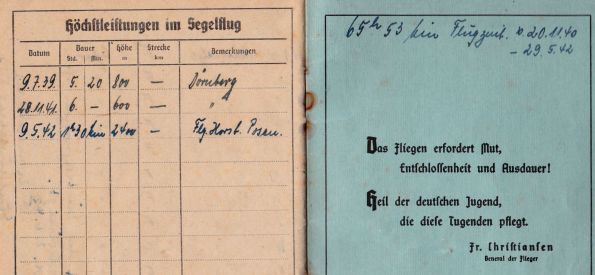 Höchstleistungen im Segelflug
Datum Dauer Höhe Strecke Bemerkungen
Std. Min. m km
9.7.39. 5. 20 800 — Dörnberg
28.11.41. 6. — 600 — "
9.5.42 1h 30 min 2400 — Flg. Horst. Posen.
65h 53 min Flugzeit. v 20.11.40
– 29.5.42
Das Fliegen erfordert Mut,
Entschlossenheit und Ausdauer!
Heil der deutschen Jugend,
die diese Tugenden pflegt.
Fr. Christiansen
General der Flieger